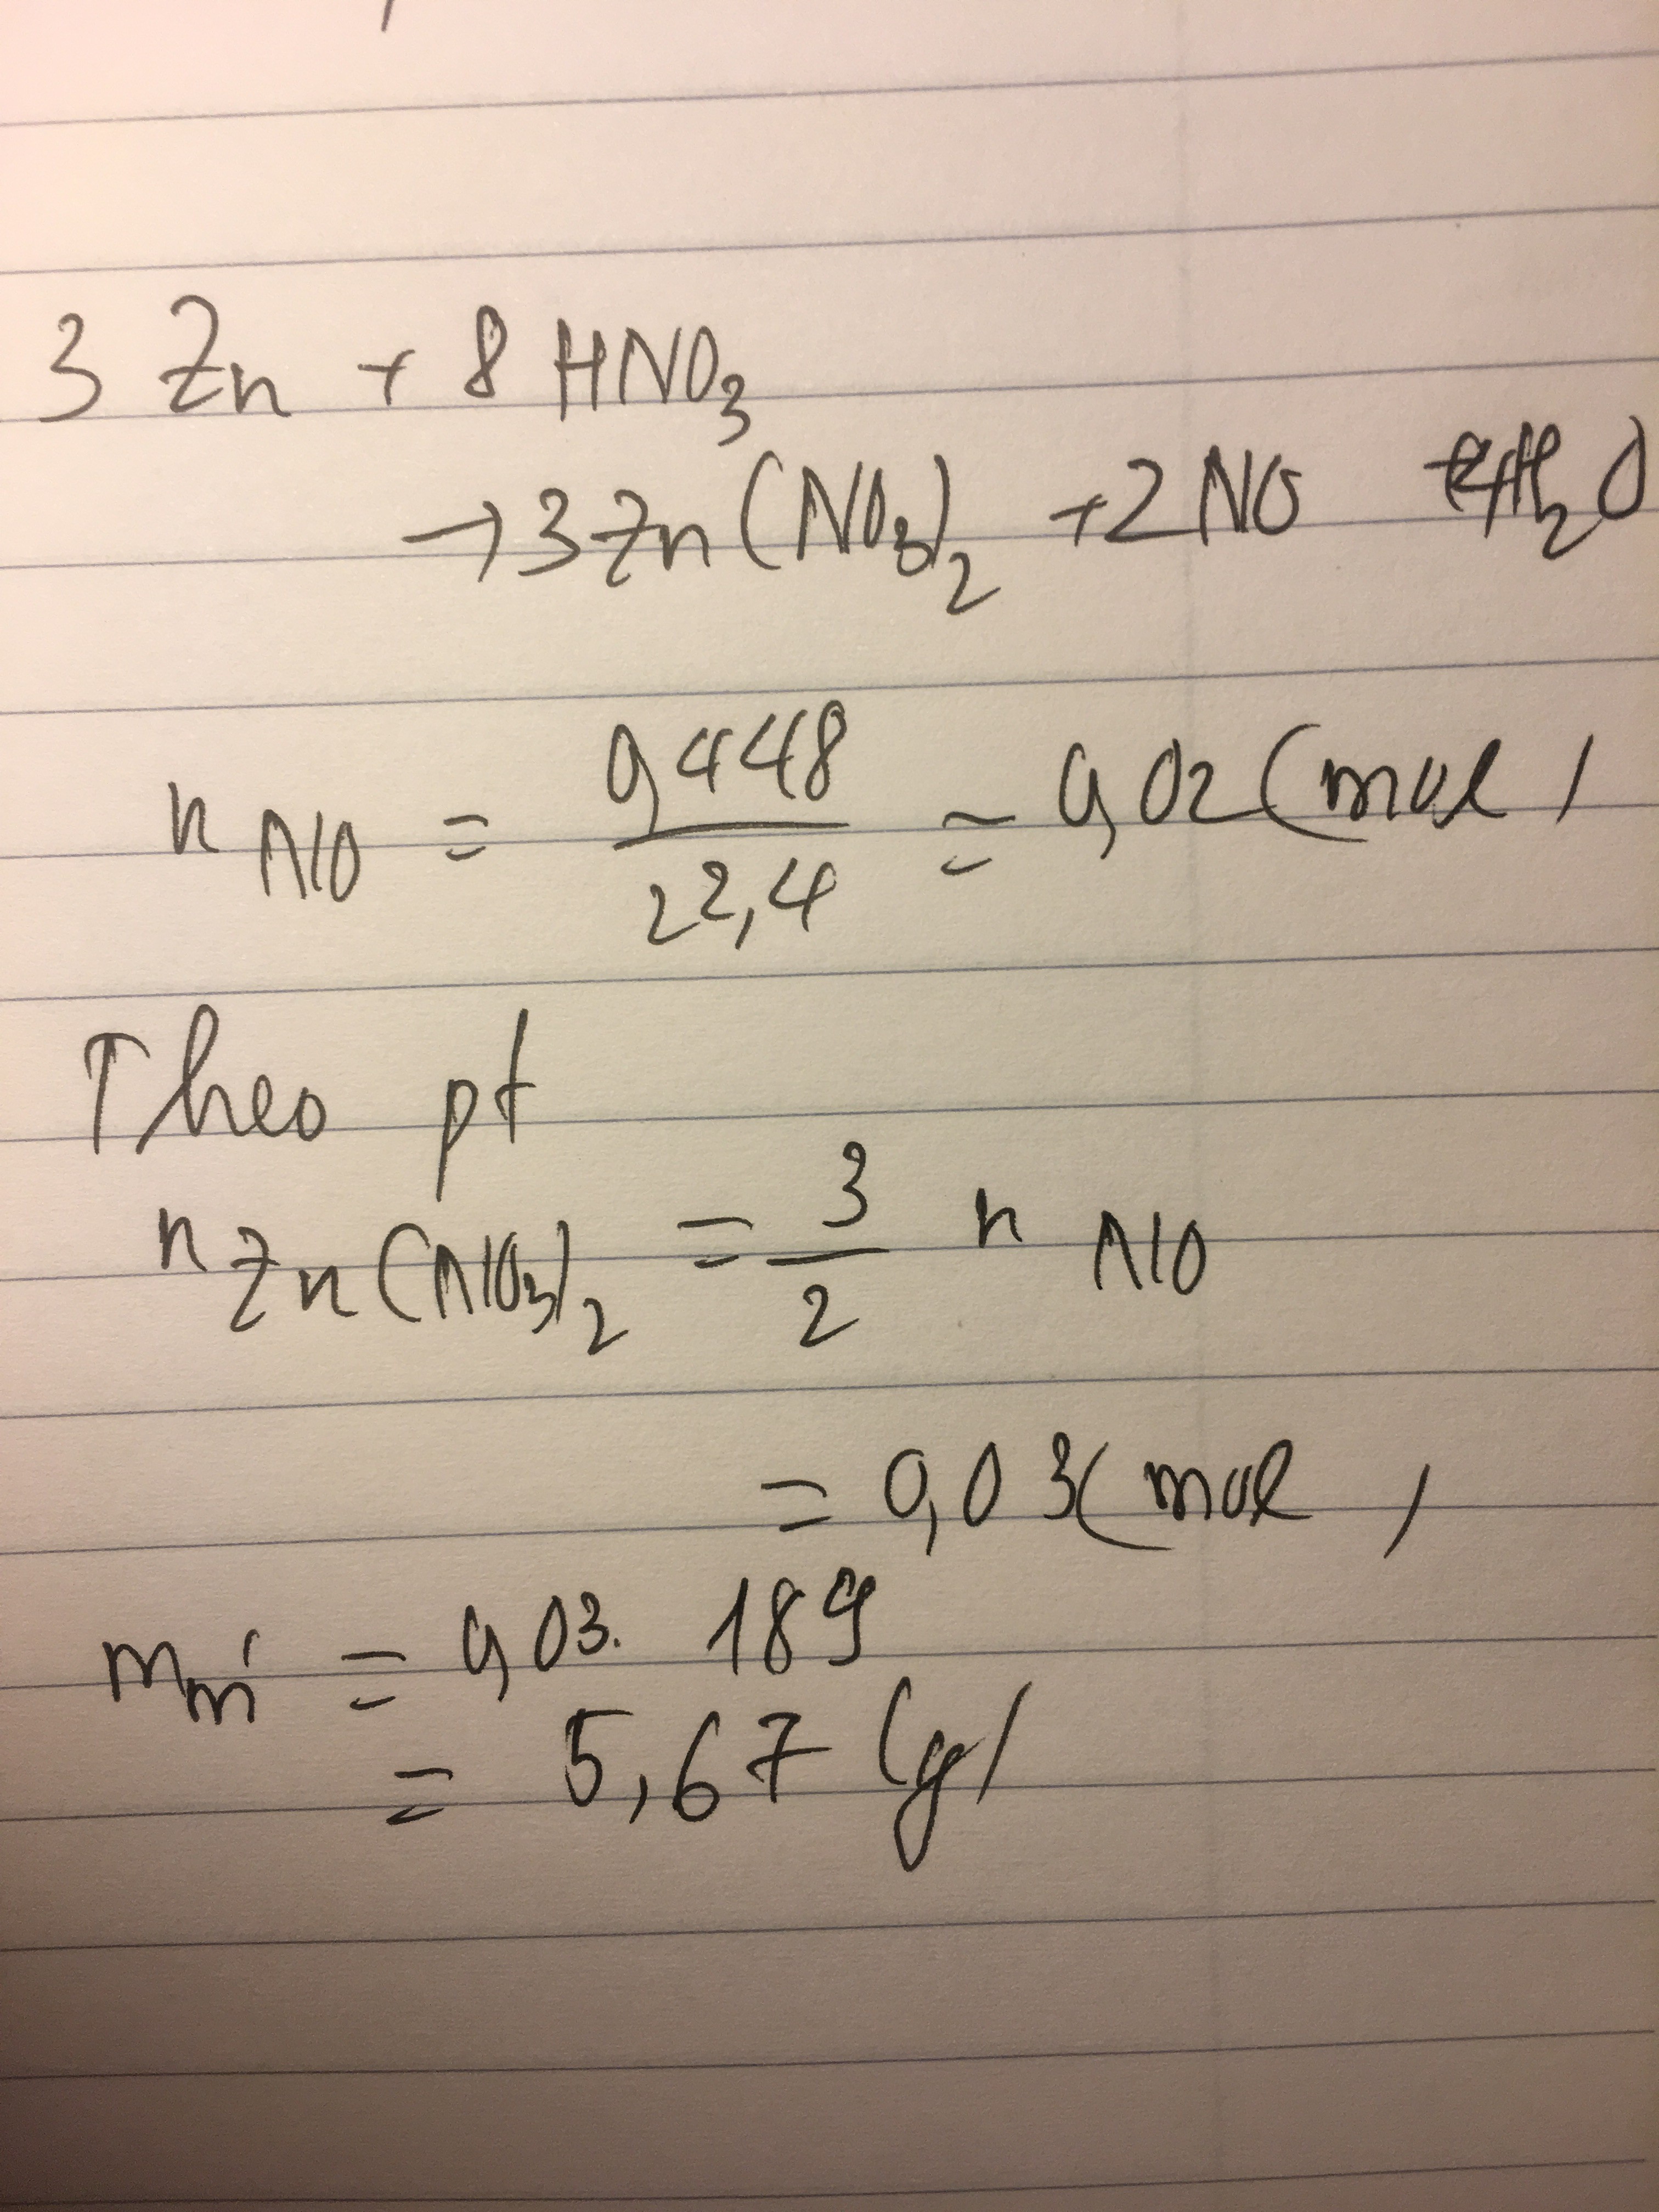 3 Zn + 8 HNO₃
→ 3 Zn(NO₃)₂ + 2 NO + 4H₂O
n NO = 0,448 / 22,4 = 0,02 (mol)
Theo pt
n Zn(NO₃)₂ = 3/2 n NO
= 0,03 (mol)
m m' = 0,03. 189
= 5,67 (g)